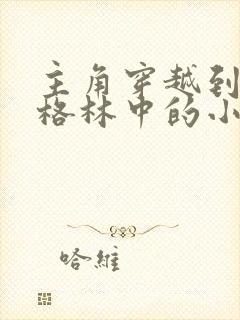 主角穿越到
格林中的小
哈維